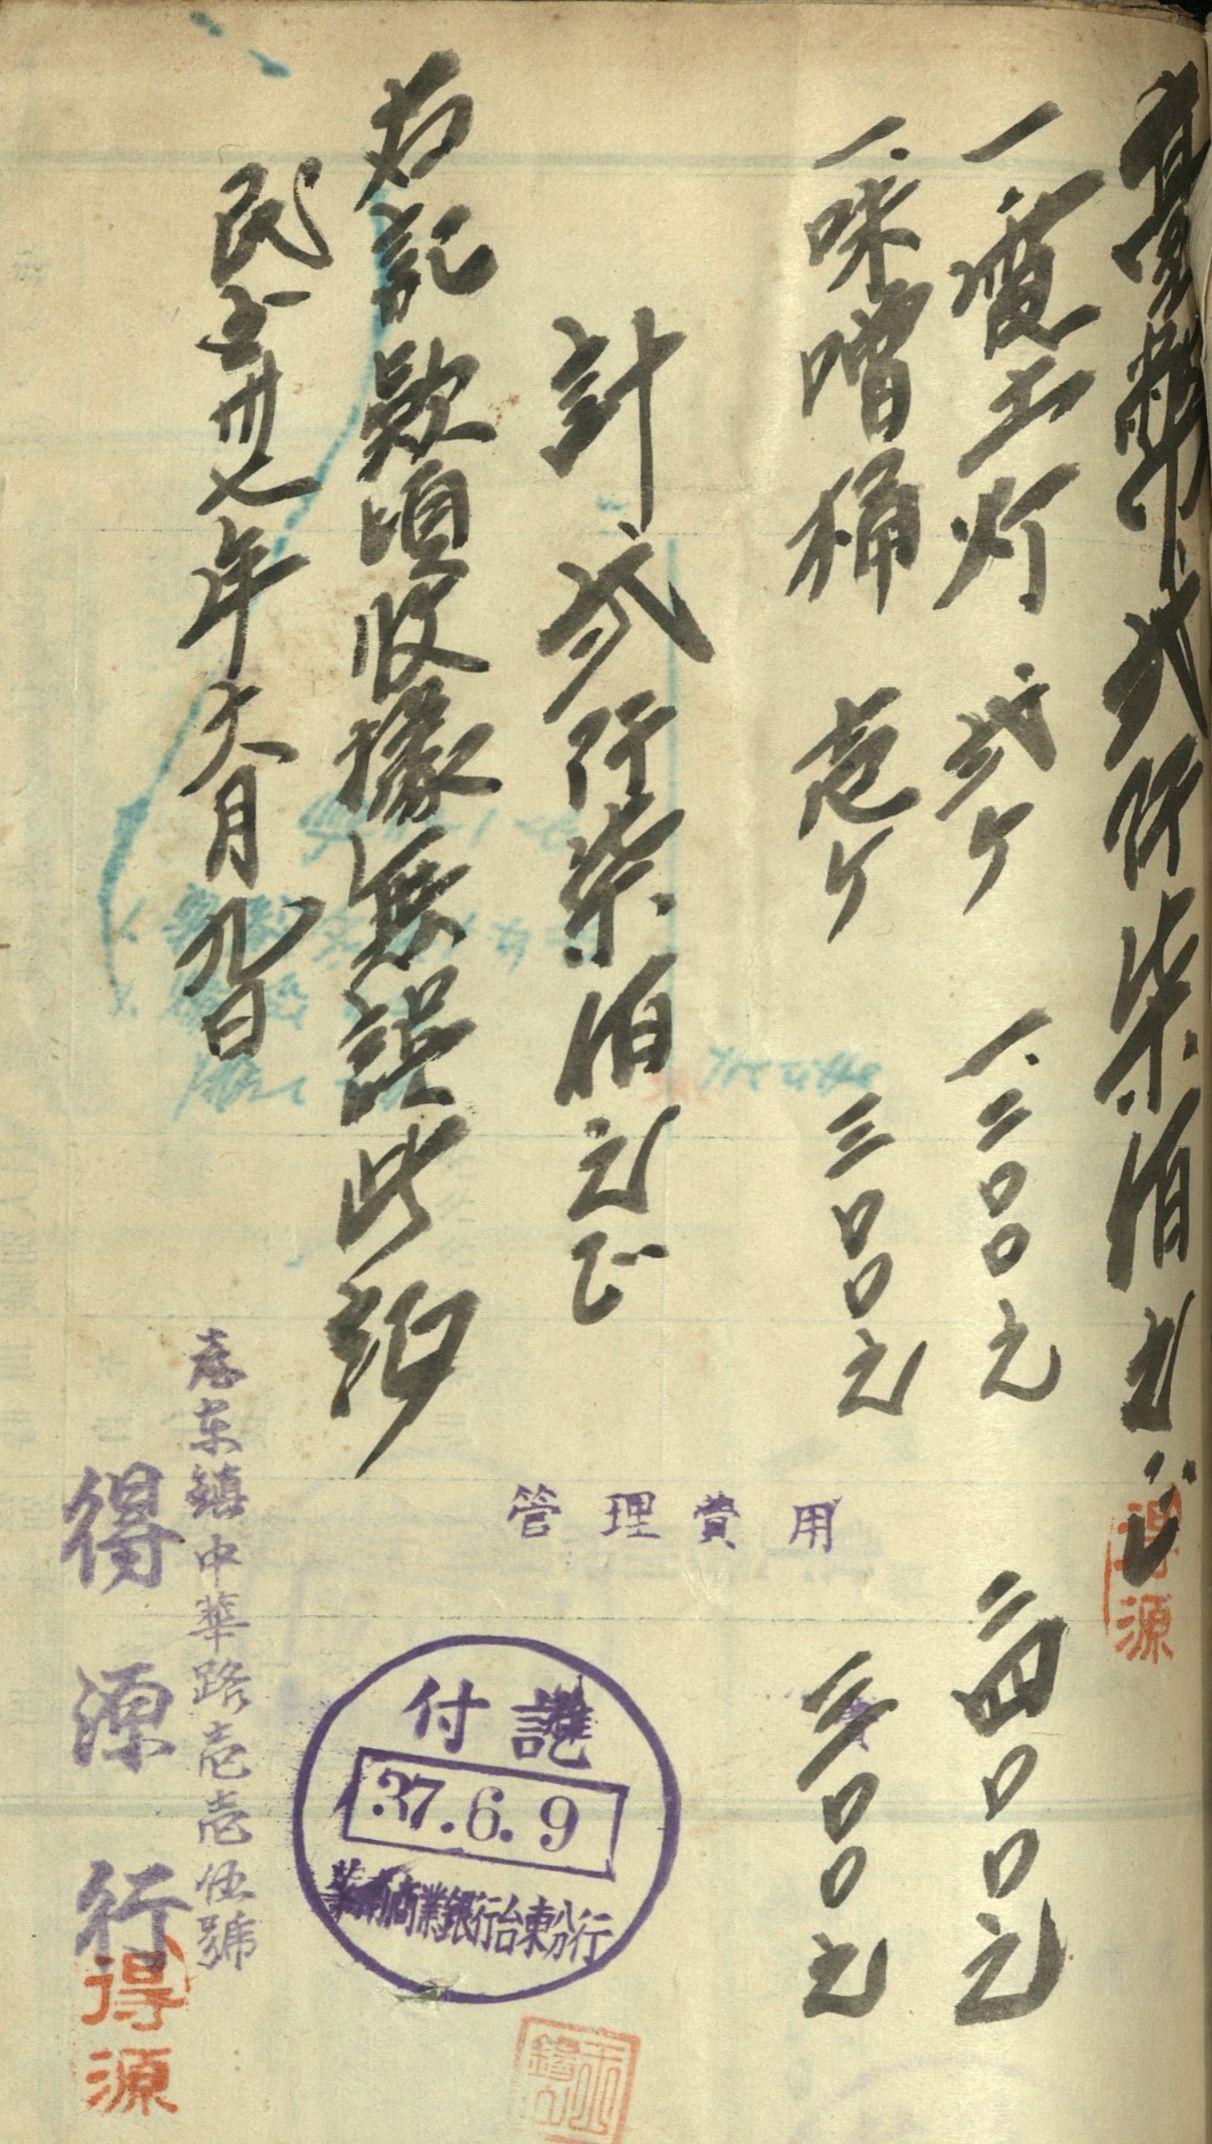 臺幣貳仟柒佰元正
得源
一.電土灯 貳ケ 一.二〇〇元 二四〇〇元
一.味噌桶 壱ケ 三〇〇元 三〇〇元
計貳仟柒佰元正
右記款項收據無誤此祈
民国卅七年六月九日
管理費用
付訖
37.6.9
華南商業銀行台東分行
臺东鎮中華路壱壱伍號
得源行
得源